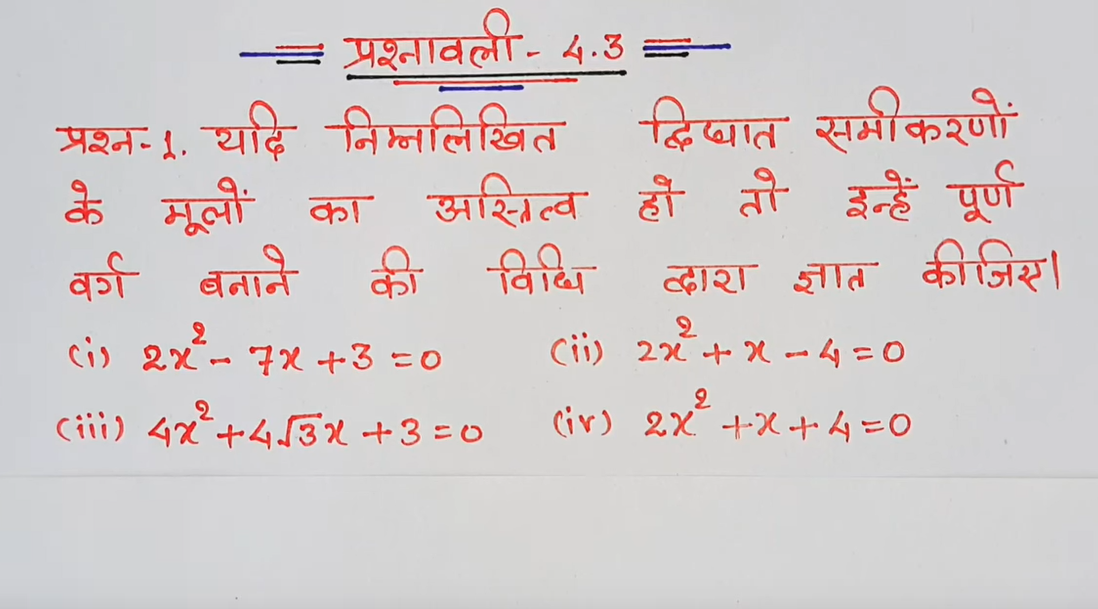 प्रश्नावली - 4.3
प्रश्न-1. यदि निम्नलिखित द्विघात समीकरणों
के मूलों का अस्तित्व हो तो इन्हें पूर्ण
वर्ग बनाने की विधि द्वारा ज्ञात कीजिए।
(i) 2x² - 7x + 3 = 0 (ii) 2x² + x - 4 = 0
(iii) 4x² + 4√3x + 3 = 0 (iv) 2x² + x + 4 = 0